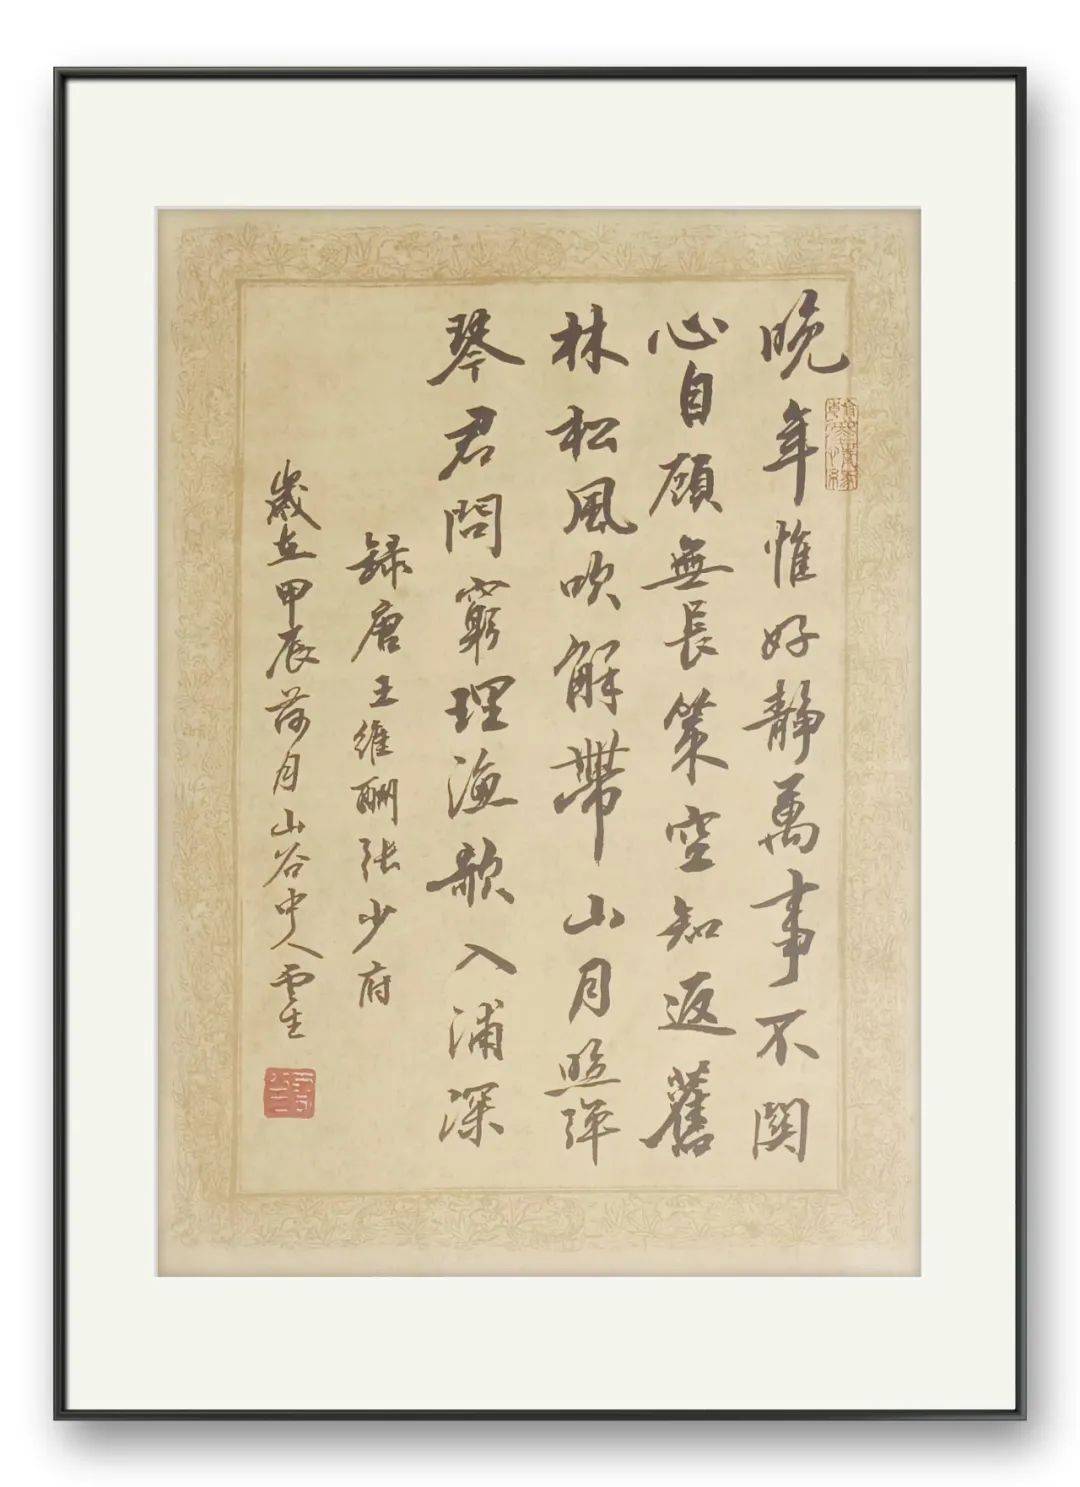 晚年惟好静萬事不関
心自顧無長策空知返舊
林松風吹解帶山月照弹
琴君問窮理漁歌入浦深
録唐王維酬张少府
歲在甲辰荷月山谷中人雲生